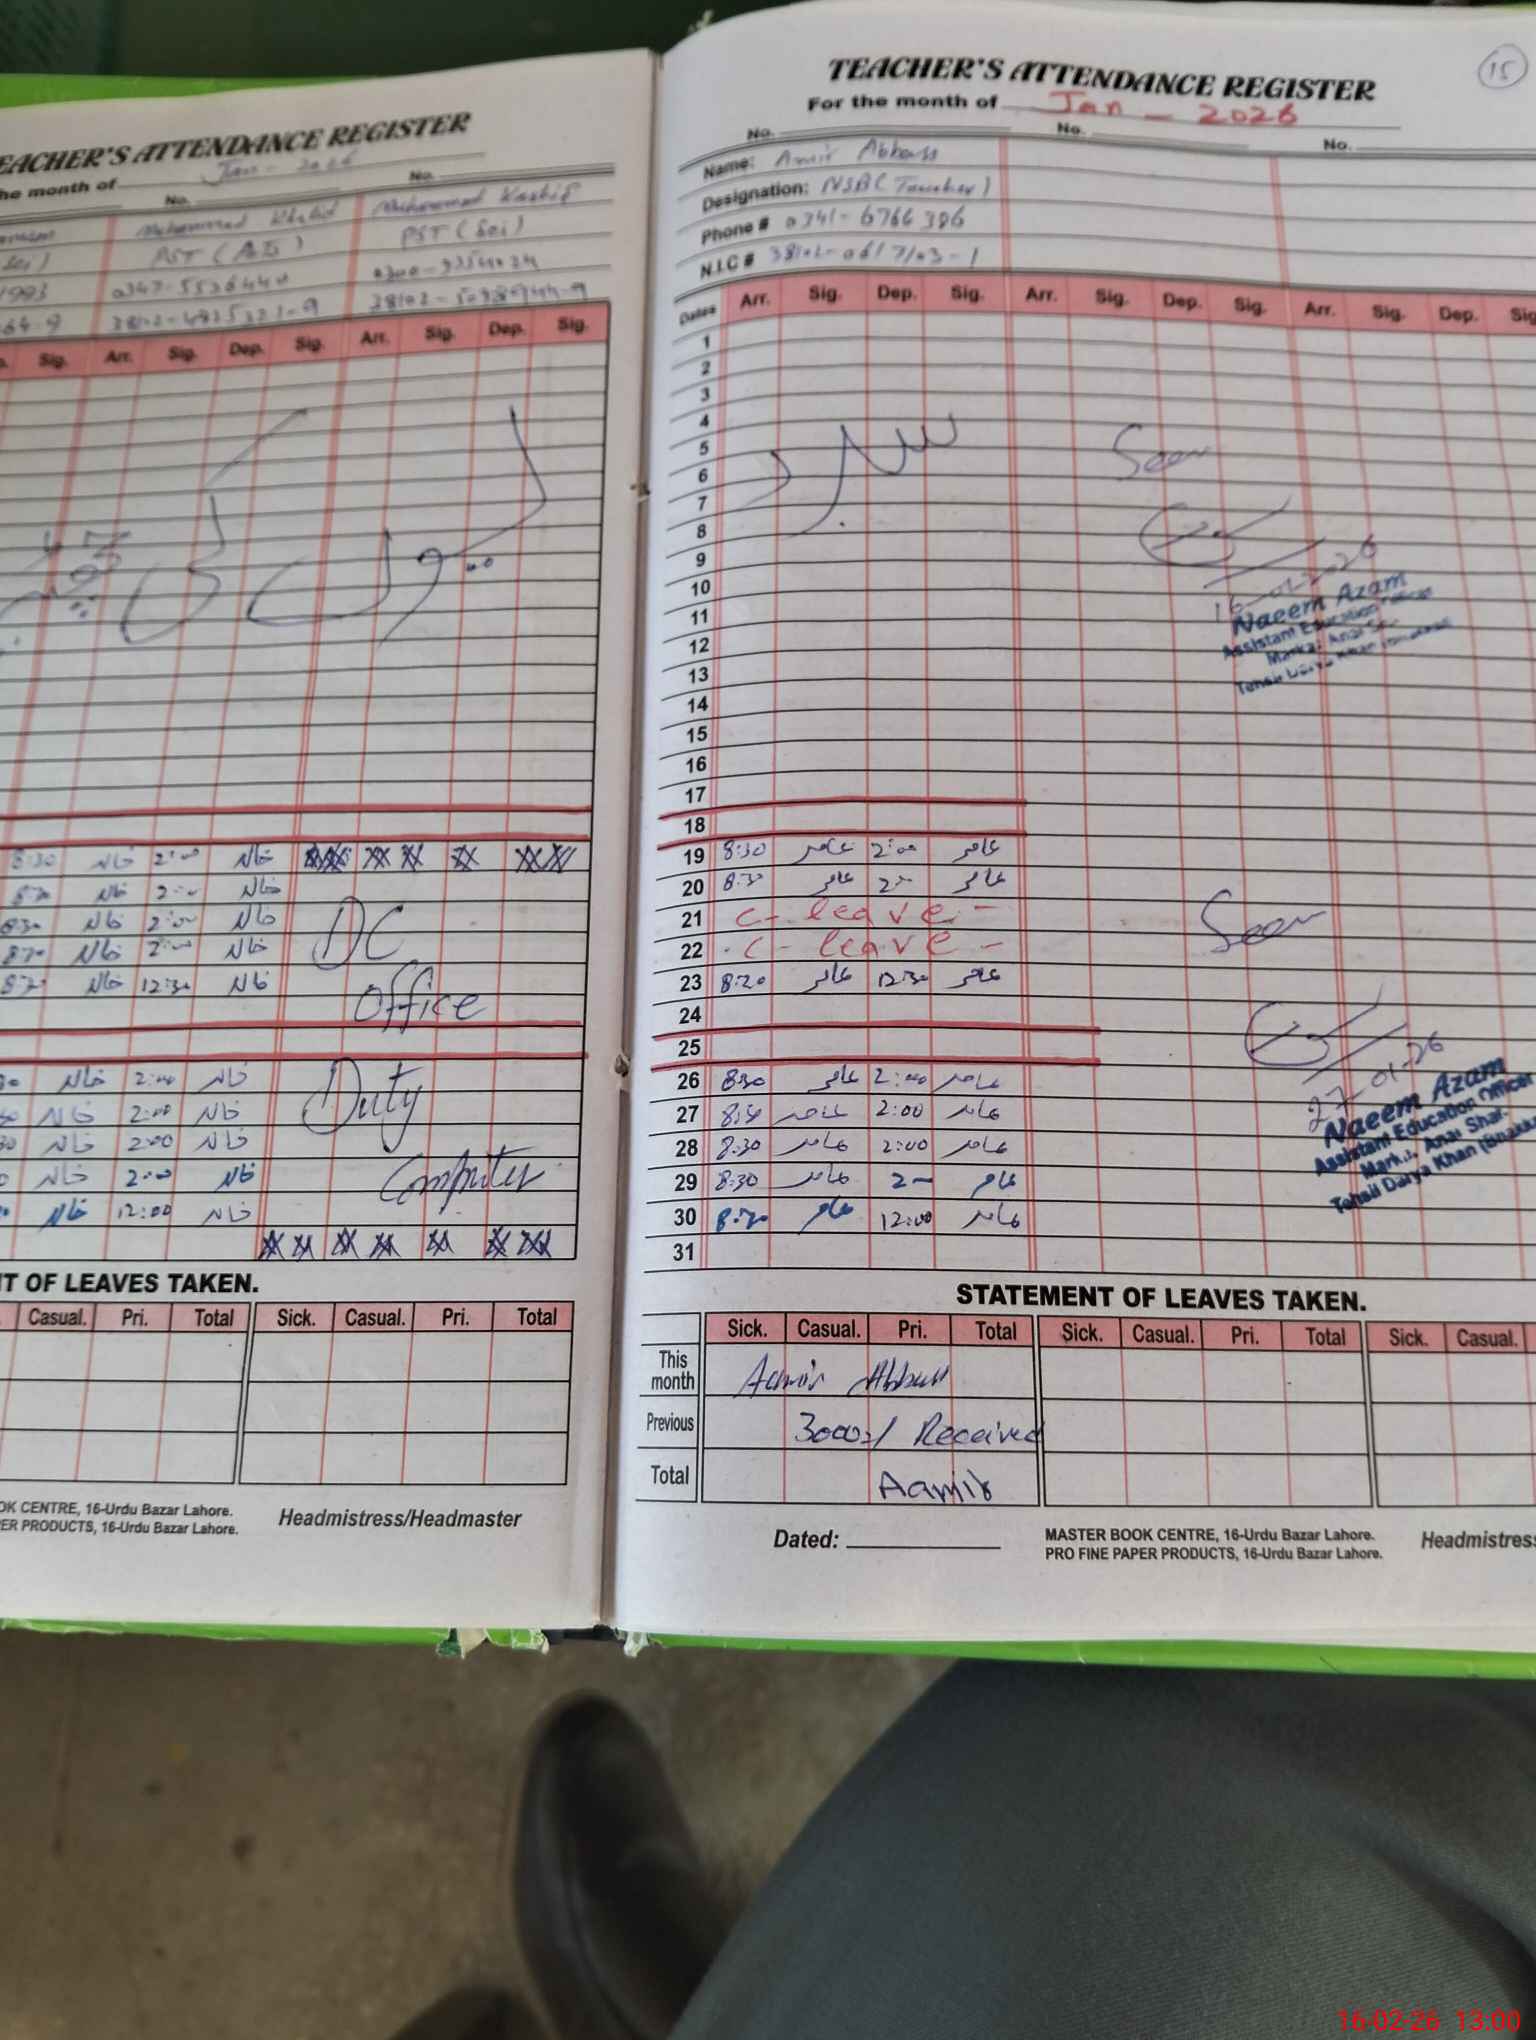 TEACHER'S ATTENDANCE REGISTER
the month of Jan - 2026
No. No.
Muhammad Khalid Muhammad Kashif
PST (Sci)
1993 0347-5536440
Sig. Arr. Sig. Dep. Sig. Arr. Sig. Dep. Sig.
8:30 خالد 2:00 خالد
8:30 خالد 2:00 خالد
8:30 خالد 2:00 خالد
DC
8:30 خالد 2:00 خالد
8:30 خالد 12:30 خالد
Office
خالد 2:00 خالد
Duty
خالد 2:00 خالد
خالد 2:00 خالد
خالد 2:00 خالد
Computer
خالد 12:00 خالد
T OF LEAVES TAKEN.
Casual. Pri. Total Sick. Casual. Pri. Total
OK CENTRE, 16-Urdu Bazar Lahore.
ER PRODUCTS, 16-Urdu Bazar Lahore.
Headmistress/Headmaster
15
TEACHER'S ATTENDANCE REGISTER
For the month of Jan - 2026
No. No. No.
Name: Amir Abbass
Designation: NSB (Teacher)
Phone # 0341-6766386
N.I.C #
Dates Arr. Sig. Dep. Sig. Arr. Sig. Dep. Sig. Arr. Sig. Dep. Sig
1
2
3
4
5
Seen
6
7
8
9
10
16-01-2026
11
Naeem Azam
Assistant Education Officer
12
13
14
15
16
17
18
19 8:30 عامر 2:00 عامر
20 8:30 عامر 2:00 عامر
21 C- leave -
22 C- leave -
Seen
23 8:30 عامر 12:30 عامر
24
25
26 8:30 عامر 2:00 عامر
27-01-26
27 8:30 عامر 2:00 عامر
Naeem Azam
Assistant Education Officer
28 8:30 عامر 2:00 عامر
29 8:30 عامر 2- عامر
Tehsil Darya Khan (Bhakkar
30 8:30 عامر 12:00 عامر
31
STATEMENT OF LEAVES TAKEN.
Sick. Casual. Pri. Total Sick. Casual. Pri. Total Sick. Casual.
This month Aamir Abbass
Previous 3000/ Received
Total Aamir
Dated:
MASTER BOOK CENTRE, 16-Urdu Bazar Lahore.
PRO FINE PAPER PRODUCTS, 16-Urdu Bazar Lahore.
Headmistress
16-02-26 13:00